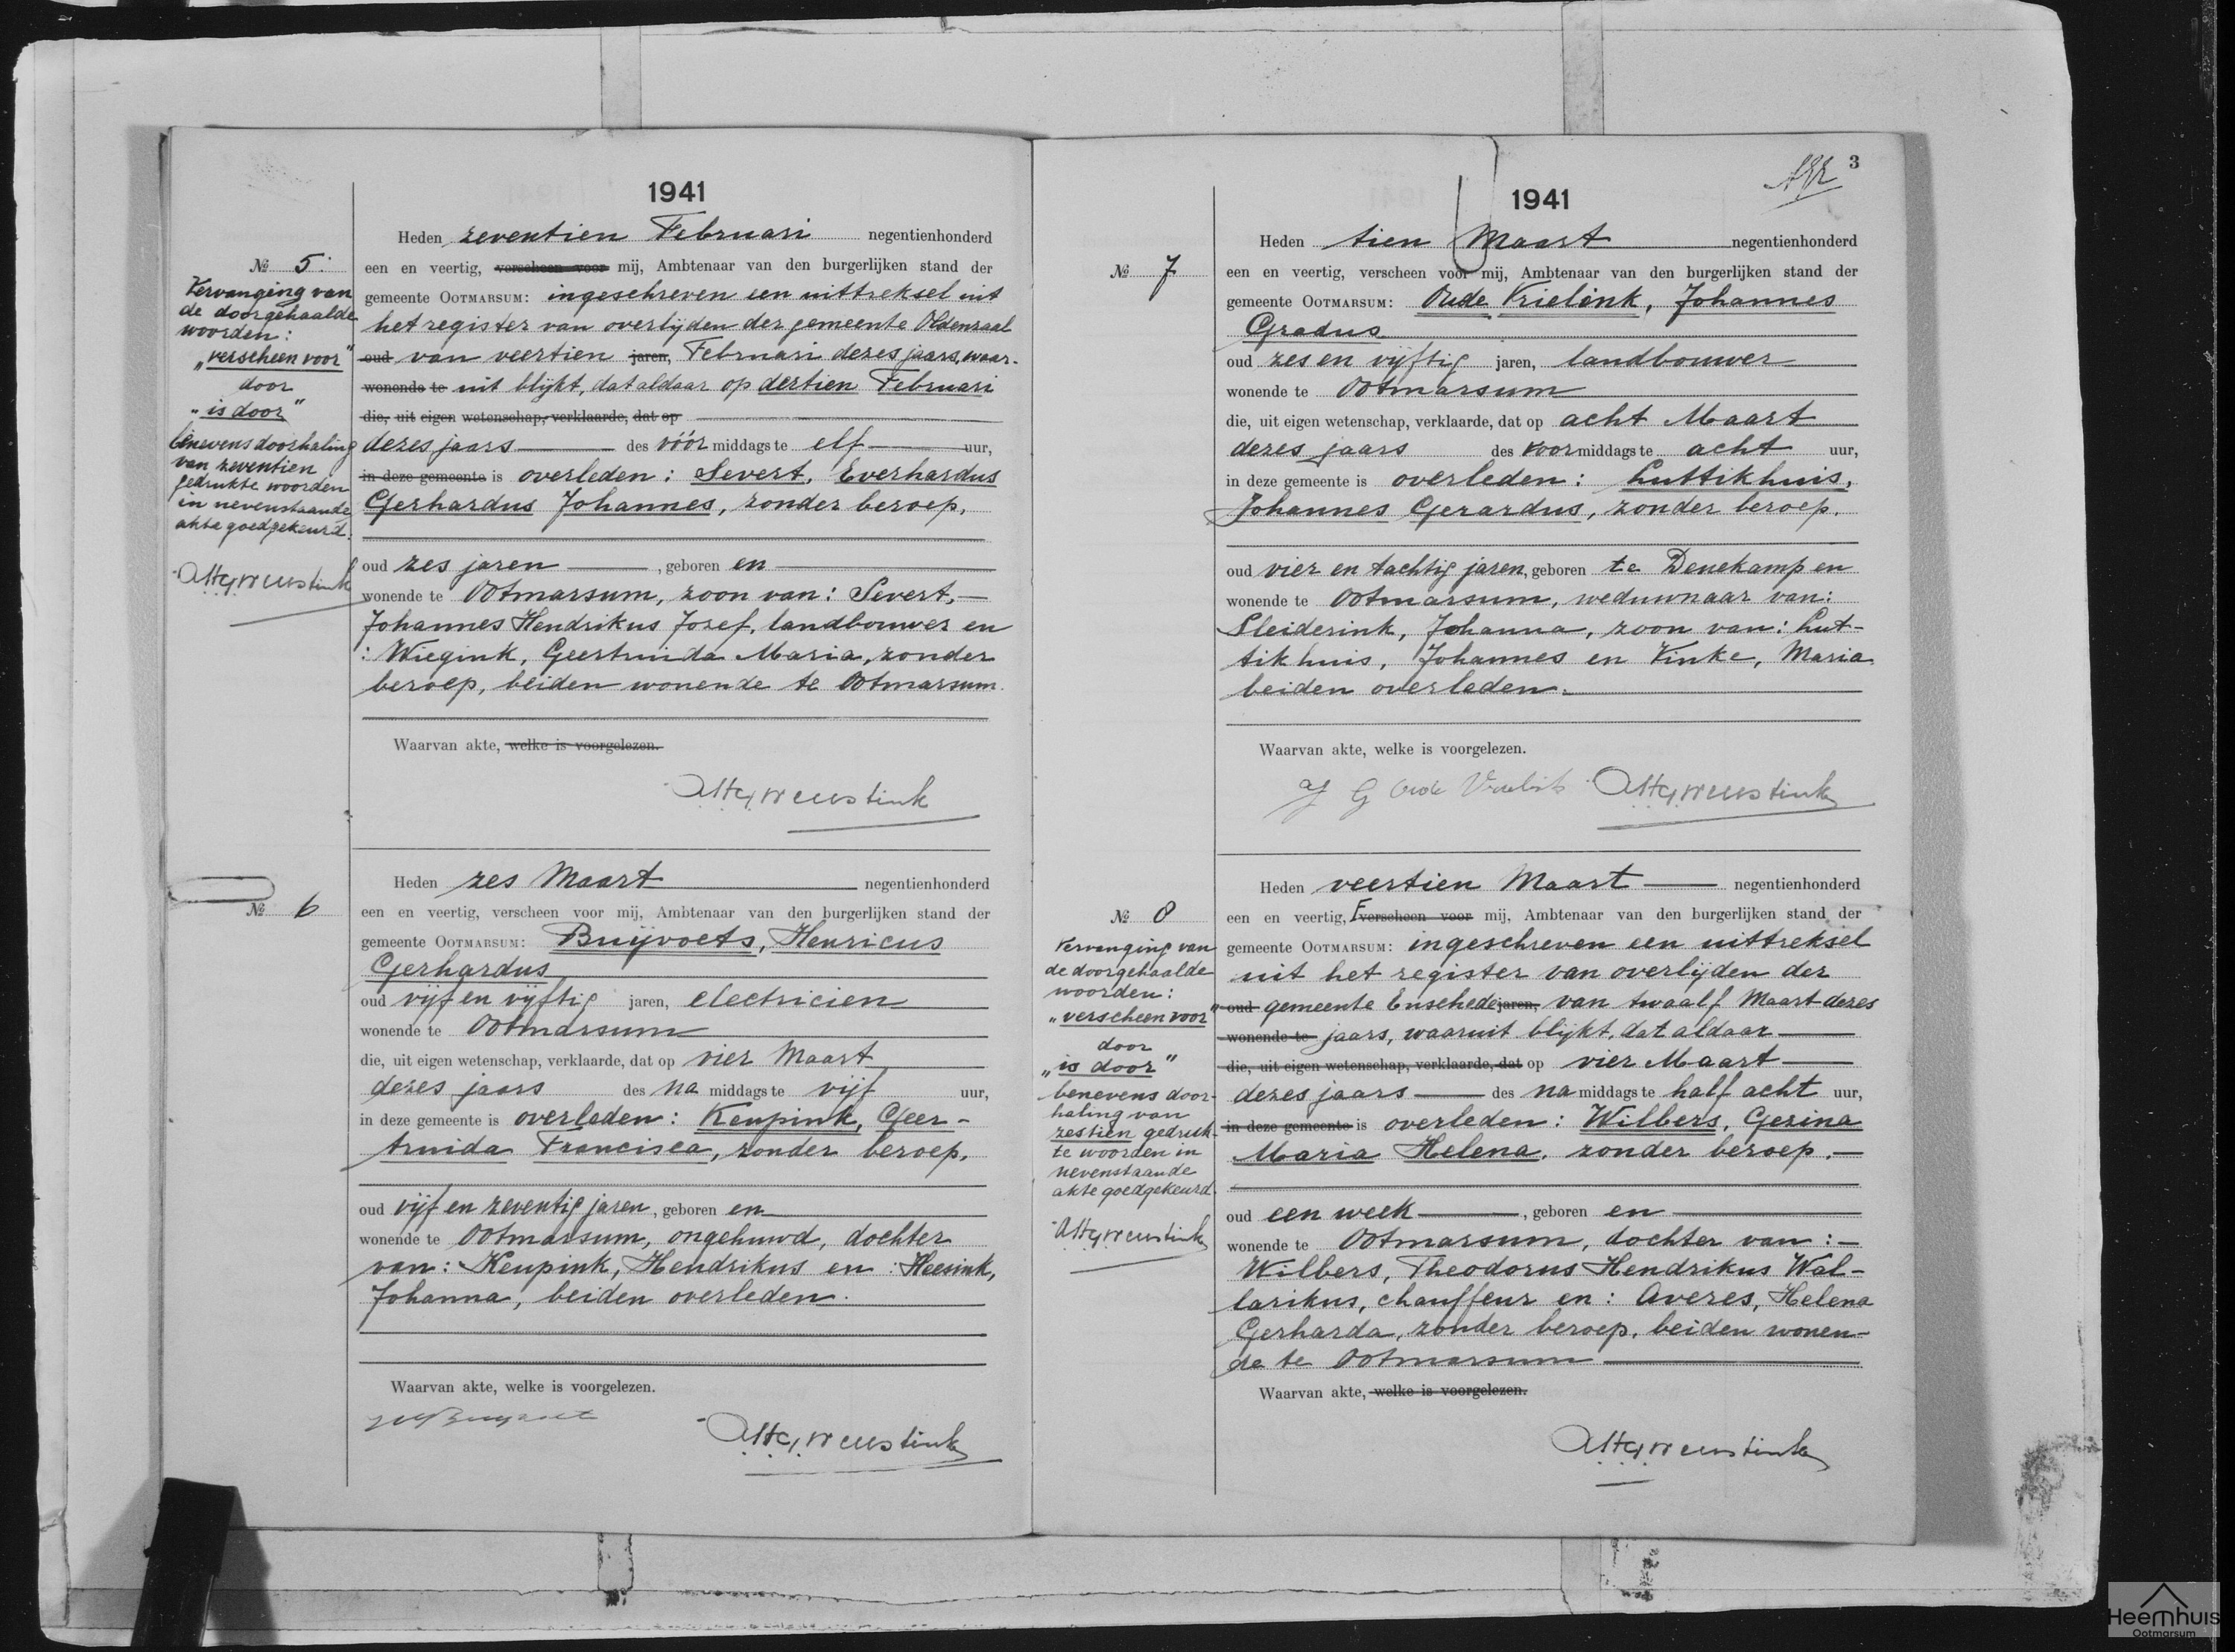 1941
Heden zeventien Februari negentienhonderd
No 5.
een en veertig, verscheen voor mij, Ambtenaar van den burgerlijken stand der
gemeente OOTMARSUM: ingeschreven een uittreksel uit
het register van overlijden der gemeente Oldenzaal
oud van veertien jaren, Februari dezes jaars, waar-
wonende te uit blijkt, dat aldaar op dertien Februari
die, uit eigen wetenschap, verklaarde, dat op
dezes jaars des vóór middags te elf uur,
in deze gemeente is overleden: Severt, Everhardus
Gerhardus Johannes, zonder beroep,
oud zes jaren, geboren en
wonende te Ootmarsum, zoon van: Severt,
Johannes Hendrikus Jozef, landbouwer en
: Wiegink, Geertruida Maria, zonder
beroep, beiden wonende te Ootmarsum.
Waarvan akte, welke is voorgelezen.
Vervanging van
de doorgehaalde
woorden:
„verscheen voor"
door
„is door"
benevens doorhaling
van zeventien
gedrukte woorden
in nevenstaande
akte goedgekeurd.
Heden zes Maart negentienhonderd
No 6
een en veertig, verscheen voor mij, Ambtenaar van den burgerlijken stand der
gemeente OOTMARSUM: Buijvoets, Henricus
Gerhardus
oud vijf en vijftig jaren, electricien
wonende te Ootmarsum
die, uit eigen wetenschap, verklaarde, dat op vier Maart
dezes jaars des na middags te vijf uur,
in deze gemeente is overleden: Keupink, Geer-
truida Francisca, zonder beroep,
oud vijf en zeventig jaren, geboren en
wonende te Ootmarsum, ongehuwd, dochter
van: Keupink, Hendrikus en: Heesink,
Johanna, beiden overleden.
Waarvan akte, welke is voorgelezen.
3
1941
Heden tien Maart negentienhonderd
No 7
een en veertig, verscheen voor mij, Ambtenaar van den burgerlijken stand der
gemeente OOTMARSUM: Oude Vrielink, Johannes
Gradus
oud zes en vijftig jaren, landbouwer
wonende te Ootmarsum
die, uit eigen wetenschap, verklaarde, dat op acht Maart
dezes jaars des voormiddags te acht uur,
in deze gemeente is overleden: Luttikhuis,
Johannes Gerardus, zonder beroep,
oud vier en tachtig jaren, geboren te Denekamp en
wonende te Ootmarsum, weduwnaar van:
Sleiderink, Johanna, zoon van: Lut-
tikhuis, Johannes en Vinke, Maria
beiden overleden.
Waarvan akte, welke is voorgelezen.
J G Oude Vrielink
Heden veertien Maart negentienhonderd
No 8
een en veertig, verscheen voor mij, Ambtenaar van den burgerlijken stand der
gemeente OOTMARSUM: ingeschreven een uittreksel
uit het register van overlijden der
oud gemeente Enschede jaren, van twaalf Maart dezes
wonende te jaars, waaruit blijkt, dat aldaar
die, uit eigen wetenschap, verklaarde, dat op vier Maart
dezes jaars des na middags te half acht uur,
in deze gemeente is overleden: Wilbers, Gezina
Maria Helena, zonder beroep.
oud een week, geboren en
wonende te Ootmarsum, dochter van:
Wilbers, Theodorus Hendrikus Wal-
larikus, chauffeur en: Averes, Helena
Gerharda, zonder beroep, beiden wonen-
de te Ootmarsum
Waarvan akte, welke is voorgelezen.
Vervanging van
de doorgehaalde
woorden:
„verscheen voor"
door
„is door"
benevens door-
haling van
zestien gedruk-
te woorden in
nevenstaande
akte goedgekeurd.
Heemhuis
Ootmarsum